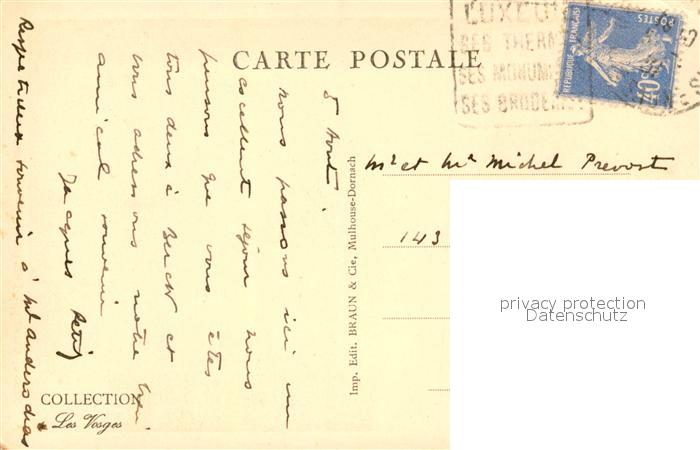 CARTE POSTALE
LUXEU
SES THERM
SES MONUM
SES BRODERI
REPUBLIQUE FRANÇAISE
POSTES
40c
5 Août.
nous passons ici un
excellent séjour nous
pensons que vous êtes
tous deux à Berck et
vous adressons notre bien
amical souvenir
Jacques Petit
Respectueux souvenir à
Mr et Me Michel Prevost
143
Imp. Edit. BRAUN & Cie, Mulhouse-Dornach
COLLECTION
Les Vosges
privacy protection
Datenschutz